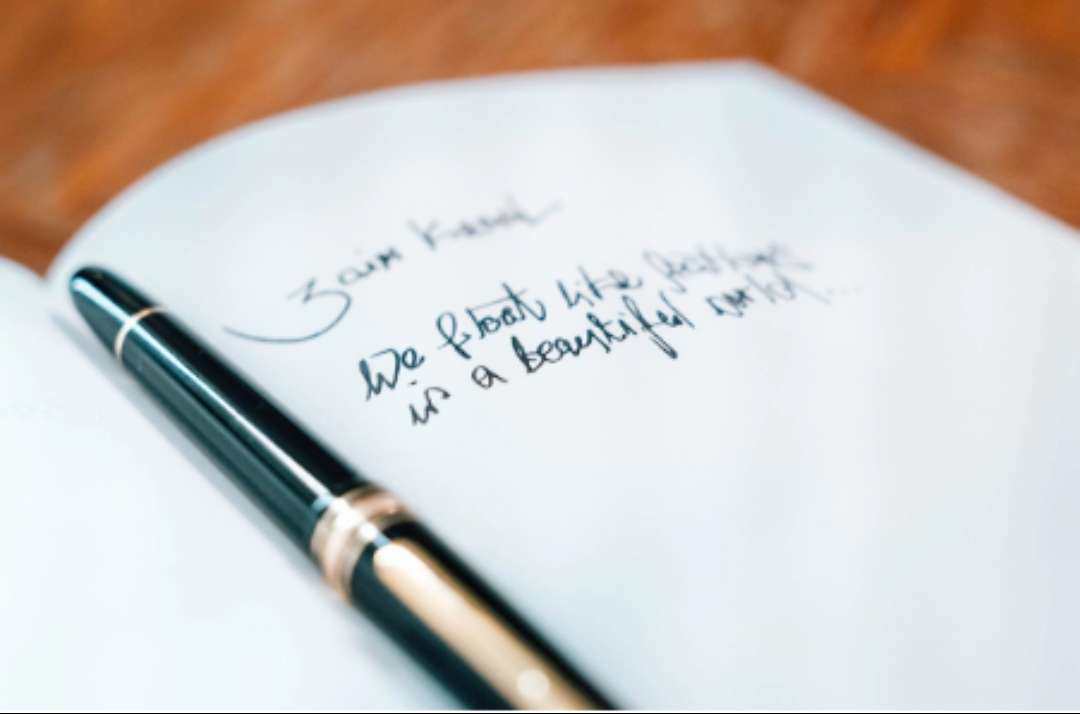 Zain
We float like feathers
in a beautiful world...